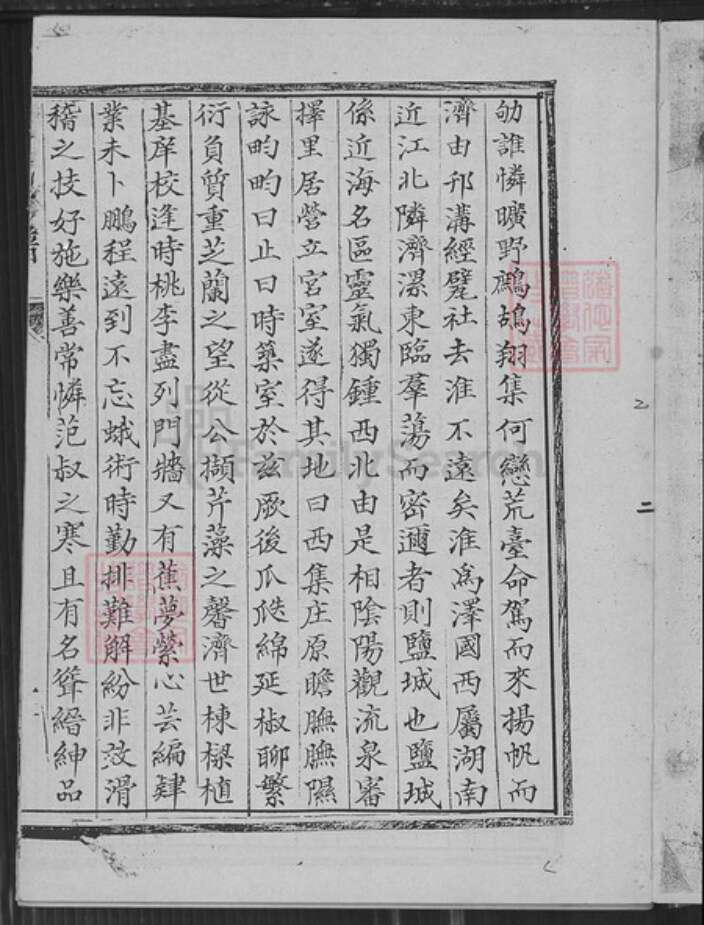 劬誰憐曠野鷓鴣翔集何戀荒臺命駕而來揚帆而
濟由邗溝經甓社去淮不遠矣淮為澤國西屬湖南
近江北隣濟漯東臨羣蕩而密邇者則鹽城也鹽城
係近海名區靈氣獨鍾西北由是相陰陽觀流泉審
擇里居營立宮室遂得其地曰西集庄原瞻膴膴隰
詠畇畇曰止曰時築室於兹厥後瓜瓞綿延椒聊繁
衍負質重芝蘭之望從公擷芹藻之馨濟世棟樑植
基庠校逢時桃李盡列門牆又有蕉夢縈心芸編肄
業未卜鵬程遠到不忘蛾術時勤排難解紛非效滑
稽之技好施樂善常憐范叔之寒且有名聳縉紳品
二
FamilySearch